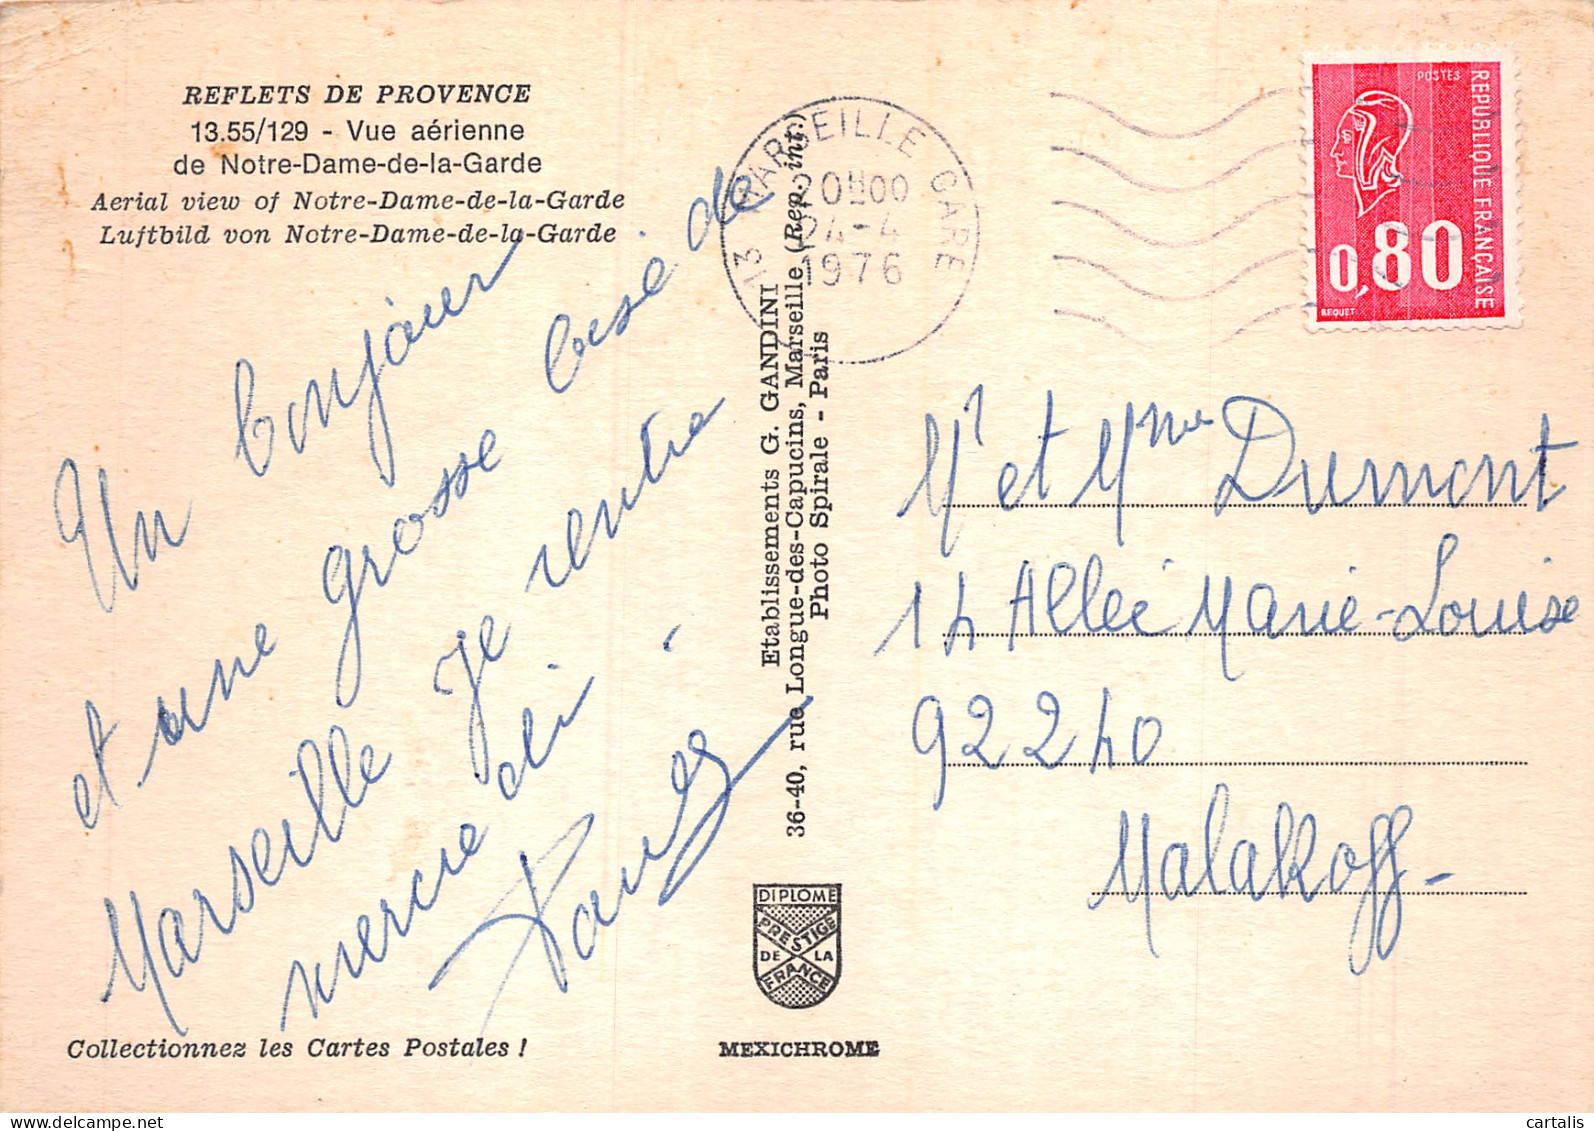 REFLETS DE PROVENCE
13.55/129 - Vue aérienne
de Notre-Dame-de-la-Garde
Aerial view of Notre-Dame-de-la-Garde
Luftbild von Notre-Dame-de-la-Garde
Un bonjour
et une grosse bise de
Marseille Je rentre
mercredi -
Collectionnez les Cartes Postales !
Etablissements G. GANDINI
36-40, rue Longue-des-Capucins, Marseille (Rep. int.)
Photo Spirale - Paris
DIPLOME
PRESTIGE
DE LA
FRANCE
MEXICHROME
13 MARSEILLE GARE
20H00
24-4
1976
POSTES
REPUBLIQUE FRANÇAISE
0,80
BEQUET
Mr et Mme Dumont
14 Allée Marie-Louise
92240
Malakoff -
cartalis
www.delcampe.net